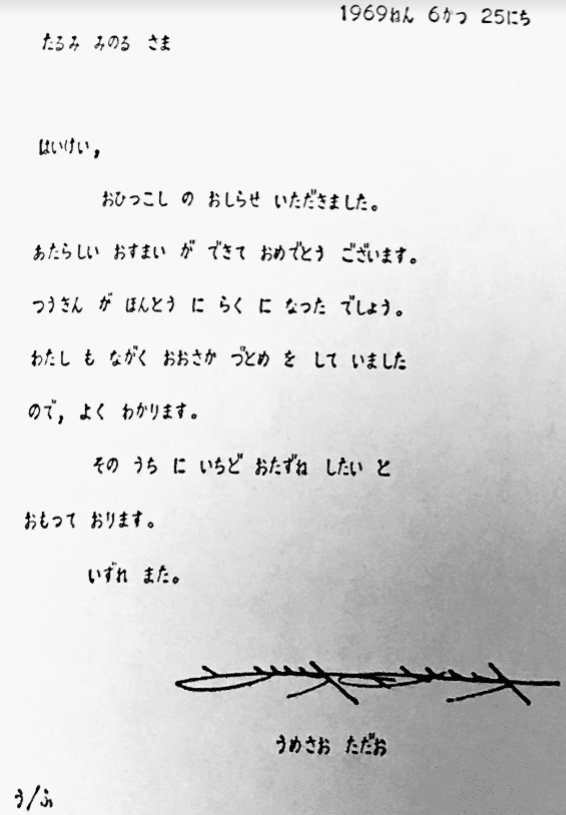 1969ねん 6がつ 25にち
たるみ みのる さま
はいけい,
おひっこし の おしらせ いただきました。
あたらしい おすまい が できて おめでとう ございます。
つうきん が ほんとう に らく に なった でしょう。
わたし も ながく おおさか づとめ を して いました
ので, よく わかります。
その うち に いちど おたずね したい と
おもって おります。
いずれ また。
うめさお ただお
う/ふ